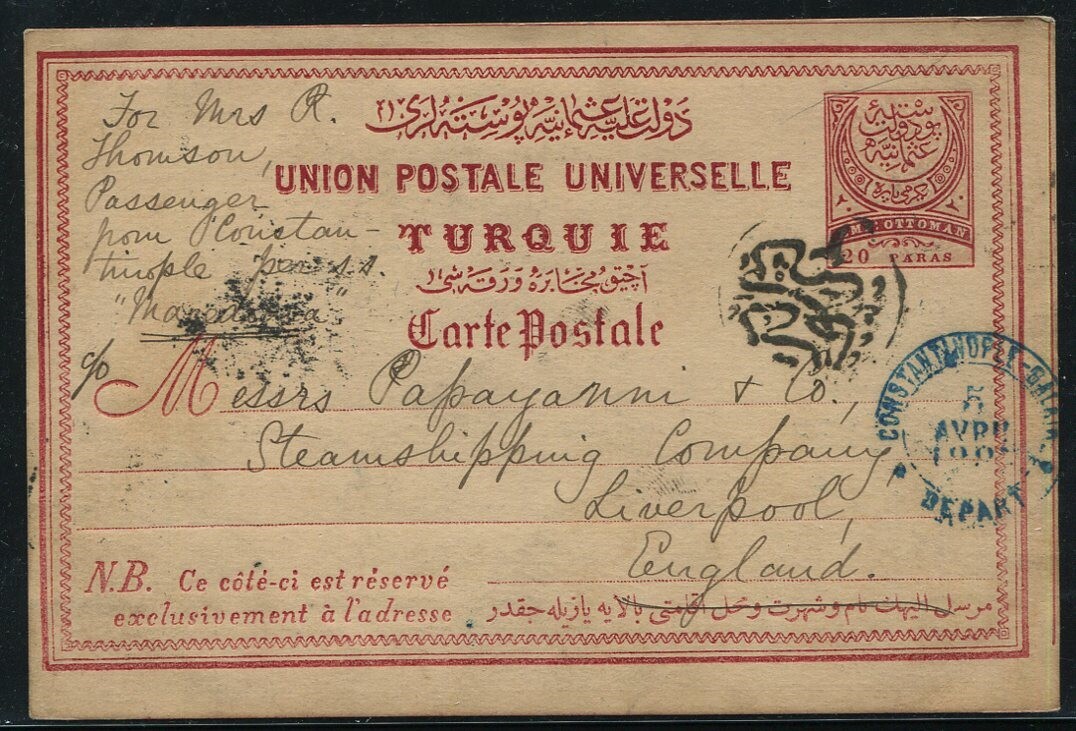 For Mrs R.
Thomson,
Passenger
from Constan-
tinople per s.s.
"Macedonia"
دولت عليه عثمانيه پوسته لرى
UNION POSTALE UNIVERSELLE
TURQUIE
آچيق مخابره ورقه سى
Carte Postale
EMP. OTTOMAN
20 PARAS
c/o Messrs Papayanni & Co.,
Steamshipping Company,
Liverpool,
England.
CONSTANTINOPLE-GALATA
5
AVRIL
DEPART
N.B. Ce côté-ci est réservé
exclusivement à l'adresse
مرسل اليهك نام وشهرت ومحل اقامتى بالايه يازيله جقدر